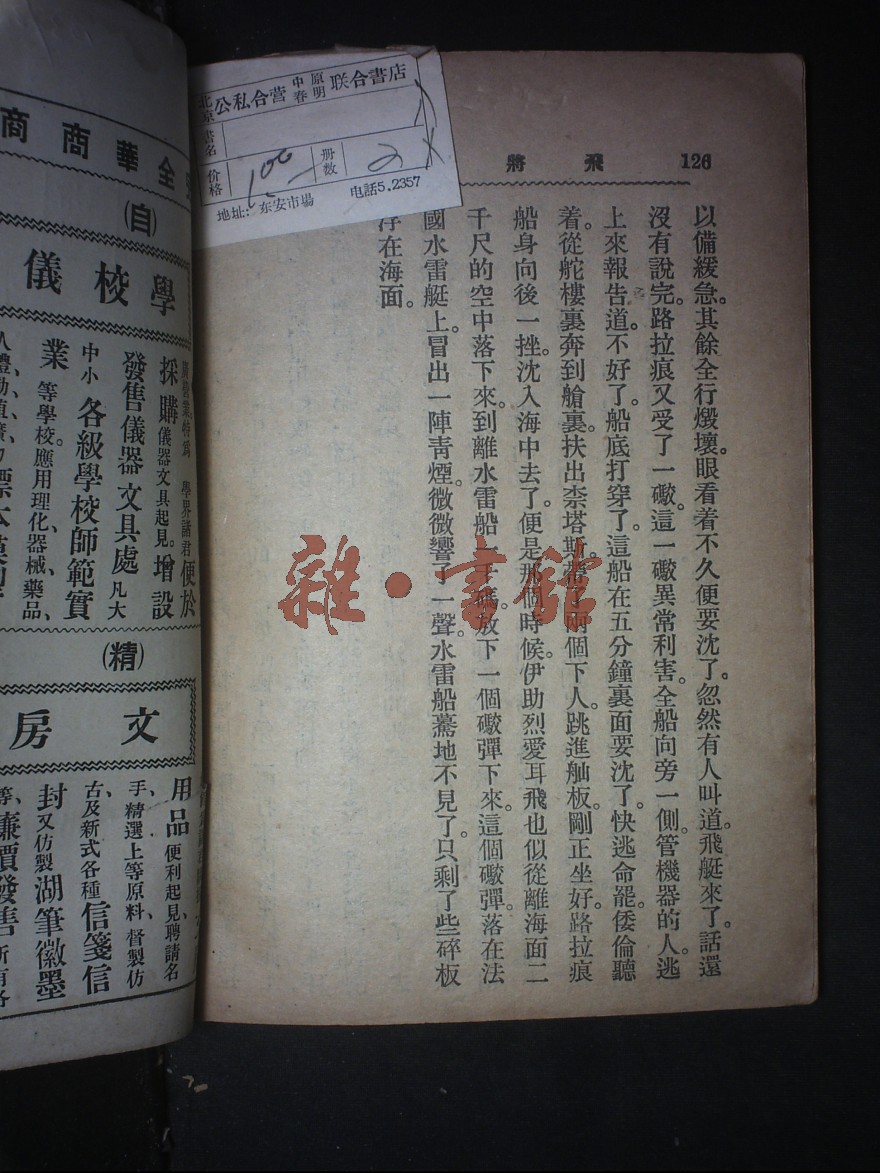 飛將
126
以備緩急。其餘全行燬壞。眼看着不久便要沈了。忽然有人叫道。飛艇來了。話還
沒有說完。路拉痕又受了一礮。這一礮異常利害。全船向旁一側。管機器的人。逃
上來報告道。不好了。船底打穿了。這船在五分鐘裏面要沈了。快逃命罷。倭倫聽
着。從舵樓裏奔到艙裏。扶出柰塔斯。帶了兩個下人。跳進舢板。剛正坐好。路拉痕
船身向後一挫。沈入海中去了。便是那個時候。伊助烈愛耳飛也似從離海面二
千尺的空中落下來。到離水雷船一千碼。放下一個礮彈下來。這個礮彈。落在法
國水雷艇上。冒出一陣青煙。微微響了一聲。水雷船驀地不見了。只剩了些碎板
浮在海面。
北京公私合营中原春明联合書店
書名
价格 100
册数 2
地址:东安市場 电話5.2357
全華商商
(自)
學校儀
學界諸君便於
採購儀器文具起見。增設
發售儀器文具處凡大
中小各級學校師範實
業等學校應用理化、器械、藥品、
(精)
文房
用品便利起見聘請名
手、精選上等原料、督製仿
古及新式各種信箋信
封又仿製湖筆徽墨
等、廉價發售
雜·書館